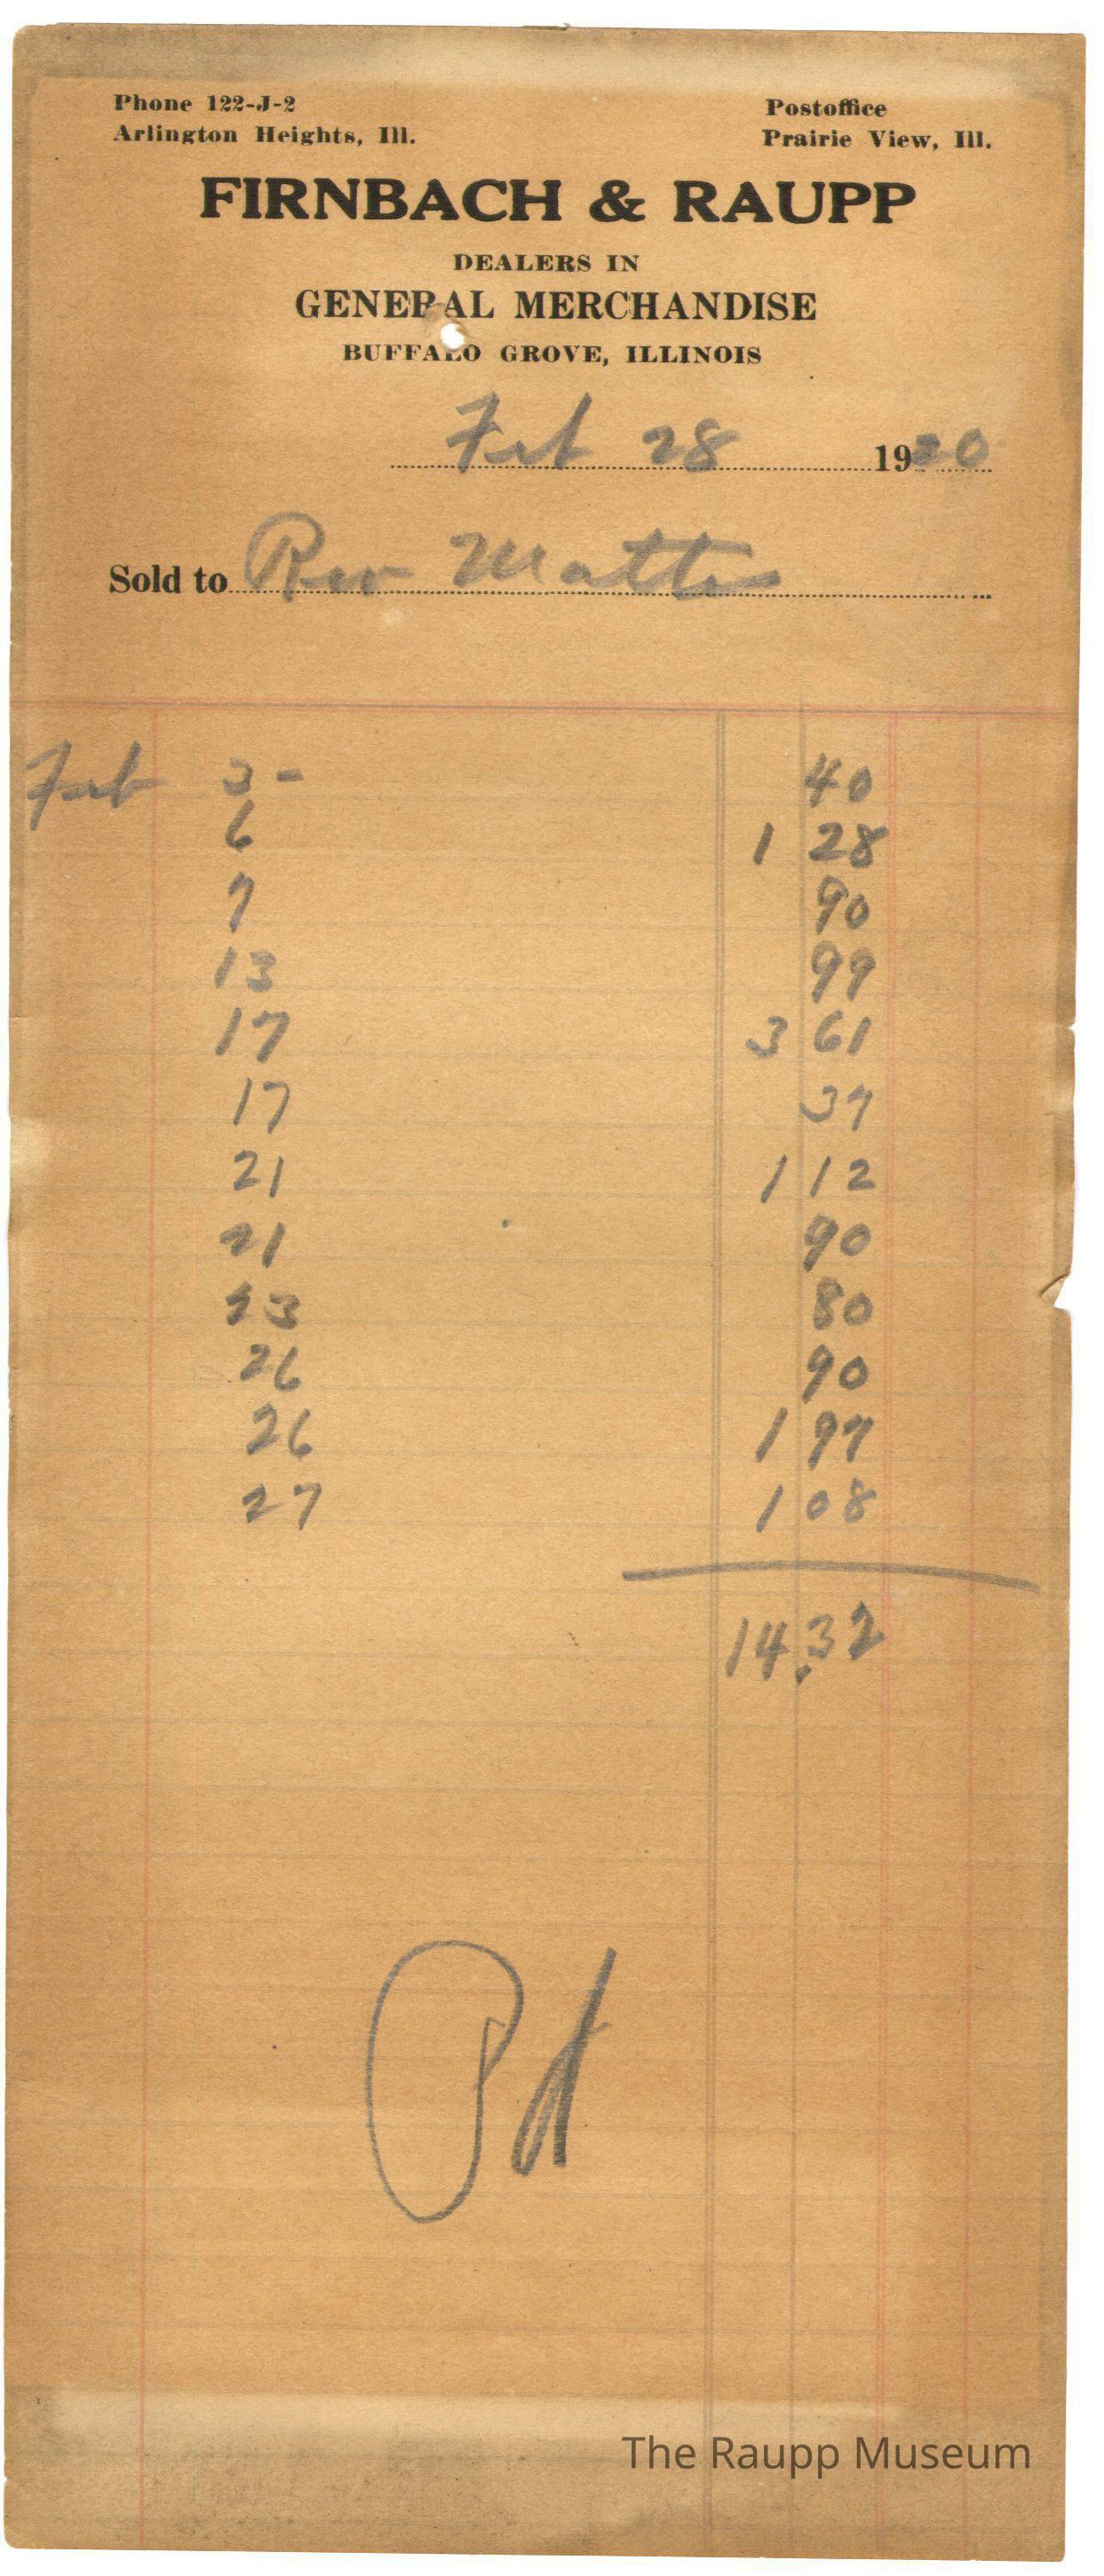 Phone 122-J-2
Arlington Heights, Ill.
Postoffice
Prairie View, Ill.
FIRNBACH & RAUPP
DEALERS IN
GENERAL MERCHANDISE
BUFFALO GROVE, ILLINOIS
Feb 28 1920
Sold to Rev Mattes
Feb 3 - 40
6 1 28
7 90
13 99
17 3 61
17 37
21 1 12
21 90
23 80
26 90
26 1 97
27 1 08
14.32
Pd
The Raupp Museum